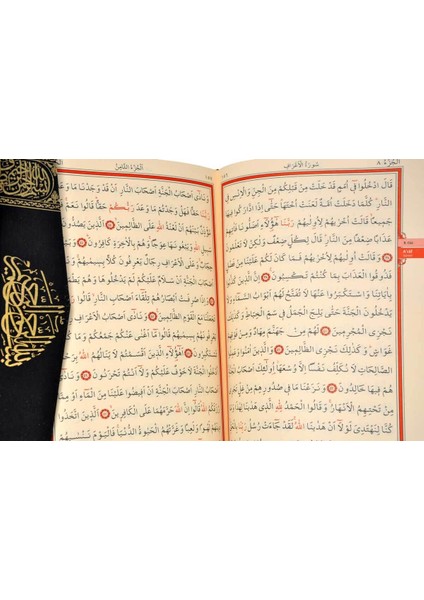 الجزء ٨
سورة الأعراف
قَالَ ادْخُلُوا فِي أُمَمٍ قَدْ خَلَتْ مِنْ قَبْلِكُمْ مِنَ الْجِنِّ وَالْإِنْسِ فِي
النَّارِ كُلَّمَا دَخَلَتْ أُمَّةٌ لَعَنَتْ أُخْتَهَا حَتَّى إِذَا ادَّارَكُوا فِيهَا
جَمِيعًا قَالَتْ أُخْرٰيهُمْ لِأُولٰيهُمْ رَبَّنَا هَؤُلَاءِ أَضَلُّونَا فَآتِهِمْ
عَذَابًا ضِعْفًا مِنَ النَّارِ قَالَ لِكُلٍّ ضِعْفٌ وَلَكِنْ لَا تَعْلَمُونَ
وَقَالَتْ أُولٰيهُمْ لِأُخْرٰيهُمْ فَمَا كَانَ لَكُمْ عَلَيْنَا مِنْ فَضْلٍ
فَذُوقُوا الْعَذَابَ بِمَا كُنْتُمْ تَكْسِبُونَ إِنَّ الَّذِينَ كَذَّبُوا
بِآيَاتِنَا وَاسْتَكْبَرُوا عَنْهَا لَا تُفَتَّحُ لَهُمْ أَبْوَابُ السَّمَاءِ
وَلَا يَدْخُلُونَ الْجَنَّةَ حَتَّى يَلِجَ الْجَمَلُ فِي سَمِّ الْخِيَاطِ وَكَذَلِكَ
نَجْزِي الْمُجْرِمِينَ لَهُمْ مِنْ جَهَنَّمَ مِهَادٌ وَمِنْ فَوْقِهِمْ
غَوَاشٍ وَكَذَلِكَ نَجْزِي الظَّالِمِينَ وَالَّذِينَ آمَنُوا وَعَمِلُوا
الصَّالِحَاتِ لَا نُكَلِّفُ نَفْسًا إِلَّا وُسْعَهَا أُولَئِكَ أَصْحَابُ الْجَنَّةِ
هُمْ فِيهَا خَالِدُونَ وَنَزَعْنَا مَا فِي صُدُورِهِمْ مِنْ غِلٍّ تَجْرِي
مِنْ تَحْتِهِمُ الْأَنْهَارُ وَقَالُوا الْحَمْدُ لِلَّهِ الَّذِي هَدٰينَا لِهَذَا وَمَا
كُنَّا لِنَهْتَدِيَ لَوْلَا أَنْ هَدٰينَا اللَّهُ لَقَدْ جَاءَتْ رُسُلُ رَبِّنَا
الجزء الثامن
وَنَادَى أَصْحَابُ الْجَنَّةِ أَصْحَابَ النَّارِ أَنْ قَدْ وَجَدْنَا مَا وَعَدَنَا
رَبُّنَا حَقًّا فَهَلْ وَجَدْتُمْ مَا وَعَدَ رَبُّكُمْ حَقًّا قَالُوا نَعَمْ
اللَّهِ عَلَى الظَّالِمِينَ الَّذِينَ يَصُدُّونَ
سَبِيلِ اللَّهِ وَيَبْغُونَهَا عِوَجًا وَهُمْ بِالْآخِرَةِ كَافِرُونَ
وَعَلَى الْأَعْرَافِ رِجَالٌ يَعْرِفُونَ كُلًّا بِسِيمٰيهُمْ
أَصْحَابَ الْجَنَّةِ أَنْ سَلَامٌ عَلَيْكُمْ لَمْ يَدْخُلُوهَا وَهُمْ يَطْمَعُونَ
صُرِفَتْ أَبْصَارُهُمْ تِلْقَاءَ أَصْحَابِ النَّارِ قَالُوا
مَعَ الْقَوْمِ الظَّالِمِينَ وَنَادَى أَصْحَابُ الْأَعْرَافِ
يَعْرِفُونَهُمْ بِسِيمٰيهُمْ قَالُوا مَا أَغْنَى عَنْكُمْ جَمْعُكُمْ وَمَا
تَسْتَكْبِرُونَ أَهَؤُلَاءِ الَّذِينَ أَقْسَمْتُمْ لَا يَنَالُهُمُ اللَّهُ
لَا خَوْفٌ عَلَيْكُمْ وَلَا أَنْتُمْ تَحْزَنُونَ وَنَادَى
النَّارِ أَصْحَابَ الْجَنَّةِ أَنْ أَفِيضُوا عَلَيْنَا مِنَ الْمَاءِ أَوْ مِمَّا
اللَّهُ قَالُوا إِنَّ اللَّهَ حَرَّمَهُمَا عَلَى الْكَافِرِينَ الَّذِينَ اتَّخَذُوا
لَهْوًا وَلَعِبًا وَغَرَّتْهُمُ الْحَيٰوةُ الدُّنْيَا فَالْيَوْمَ نَنْسٰيهُمْ